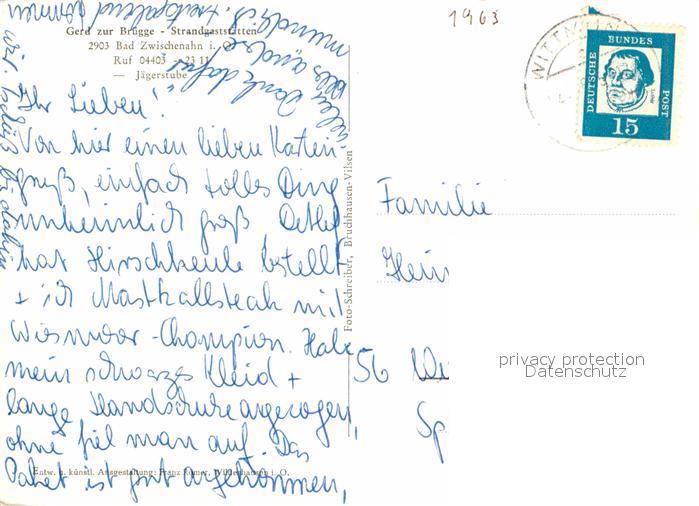 1963
Gerd zur Brügge - Strandgaststätten
2903 Bad Zwischenahn i. O.
Ruf 04403 - 23 11
— Jägerstube —
Ihr Lieben!
Von hier einen lieben Karten-
gruß, einfach tolles Ding
unheimlich groß Detlef
hat Hirschkeule bestellt
+ ich Mastkalbsteak mit
Wiesmoor-Champion. Habe
mein schwarzes Kleid +
lange Handschuhe angezogen,
ohne fiel man auf. Das
Paket ist gut angekommen,
vielen Dank dafür
Entw. u. künstl. Ausgestaltung: Franz Romer, Wildeshausen i. O.
Foto-Schreiber, Bruchhausen-Vilsen
DEUTSCHE BUNDES POST
Luther
15
WITTM
Familie
Hein
56 Wu
Sp
privacy protection
Datenschutz